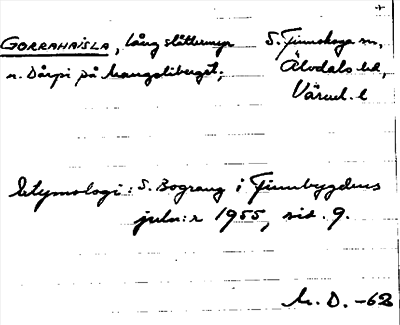 GORRAHAISLA, lång slåttemyr S. Finnskoga sn,
n. Dårpi på kangsliberget; Älvdals hd,
Värml. l
Etymologi: S. Bograng i Finnbygdens
julnr 1955, sid. 9.
M. D. -62